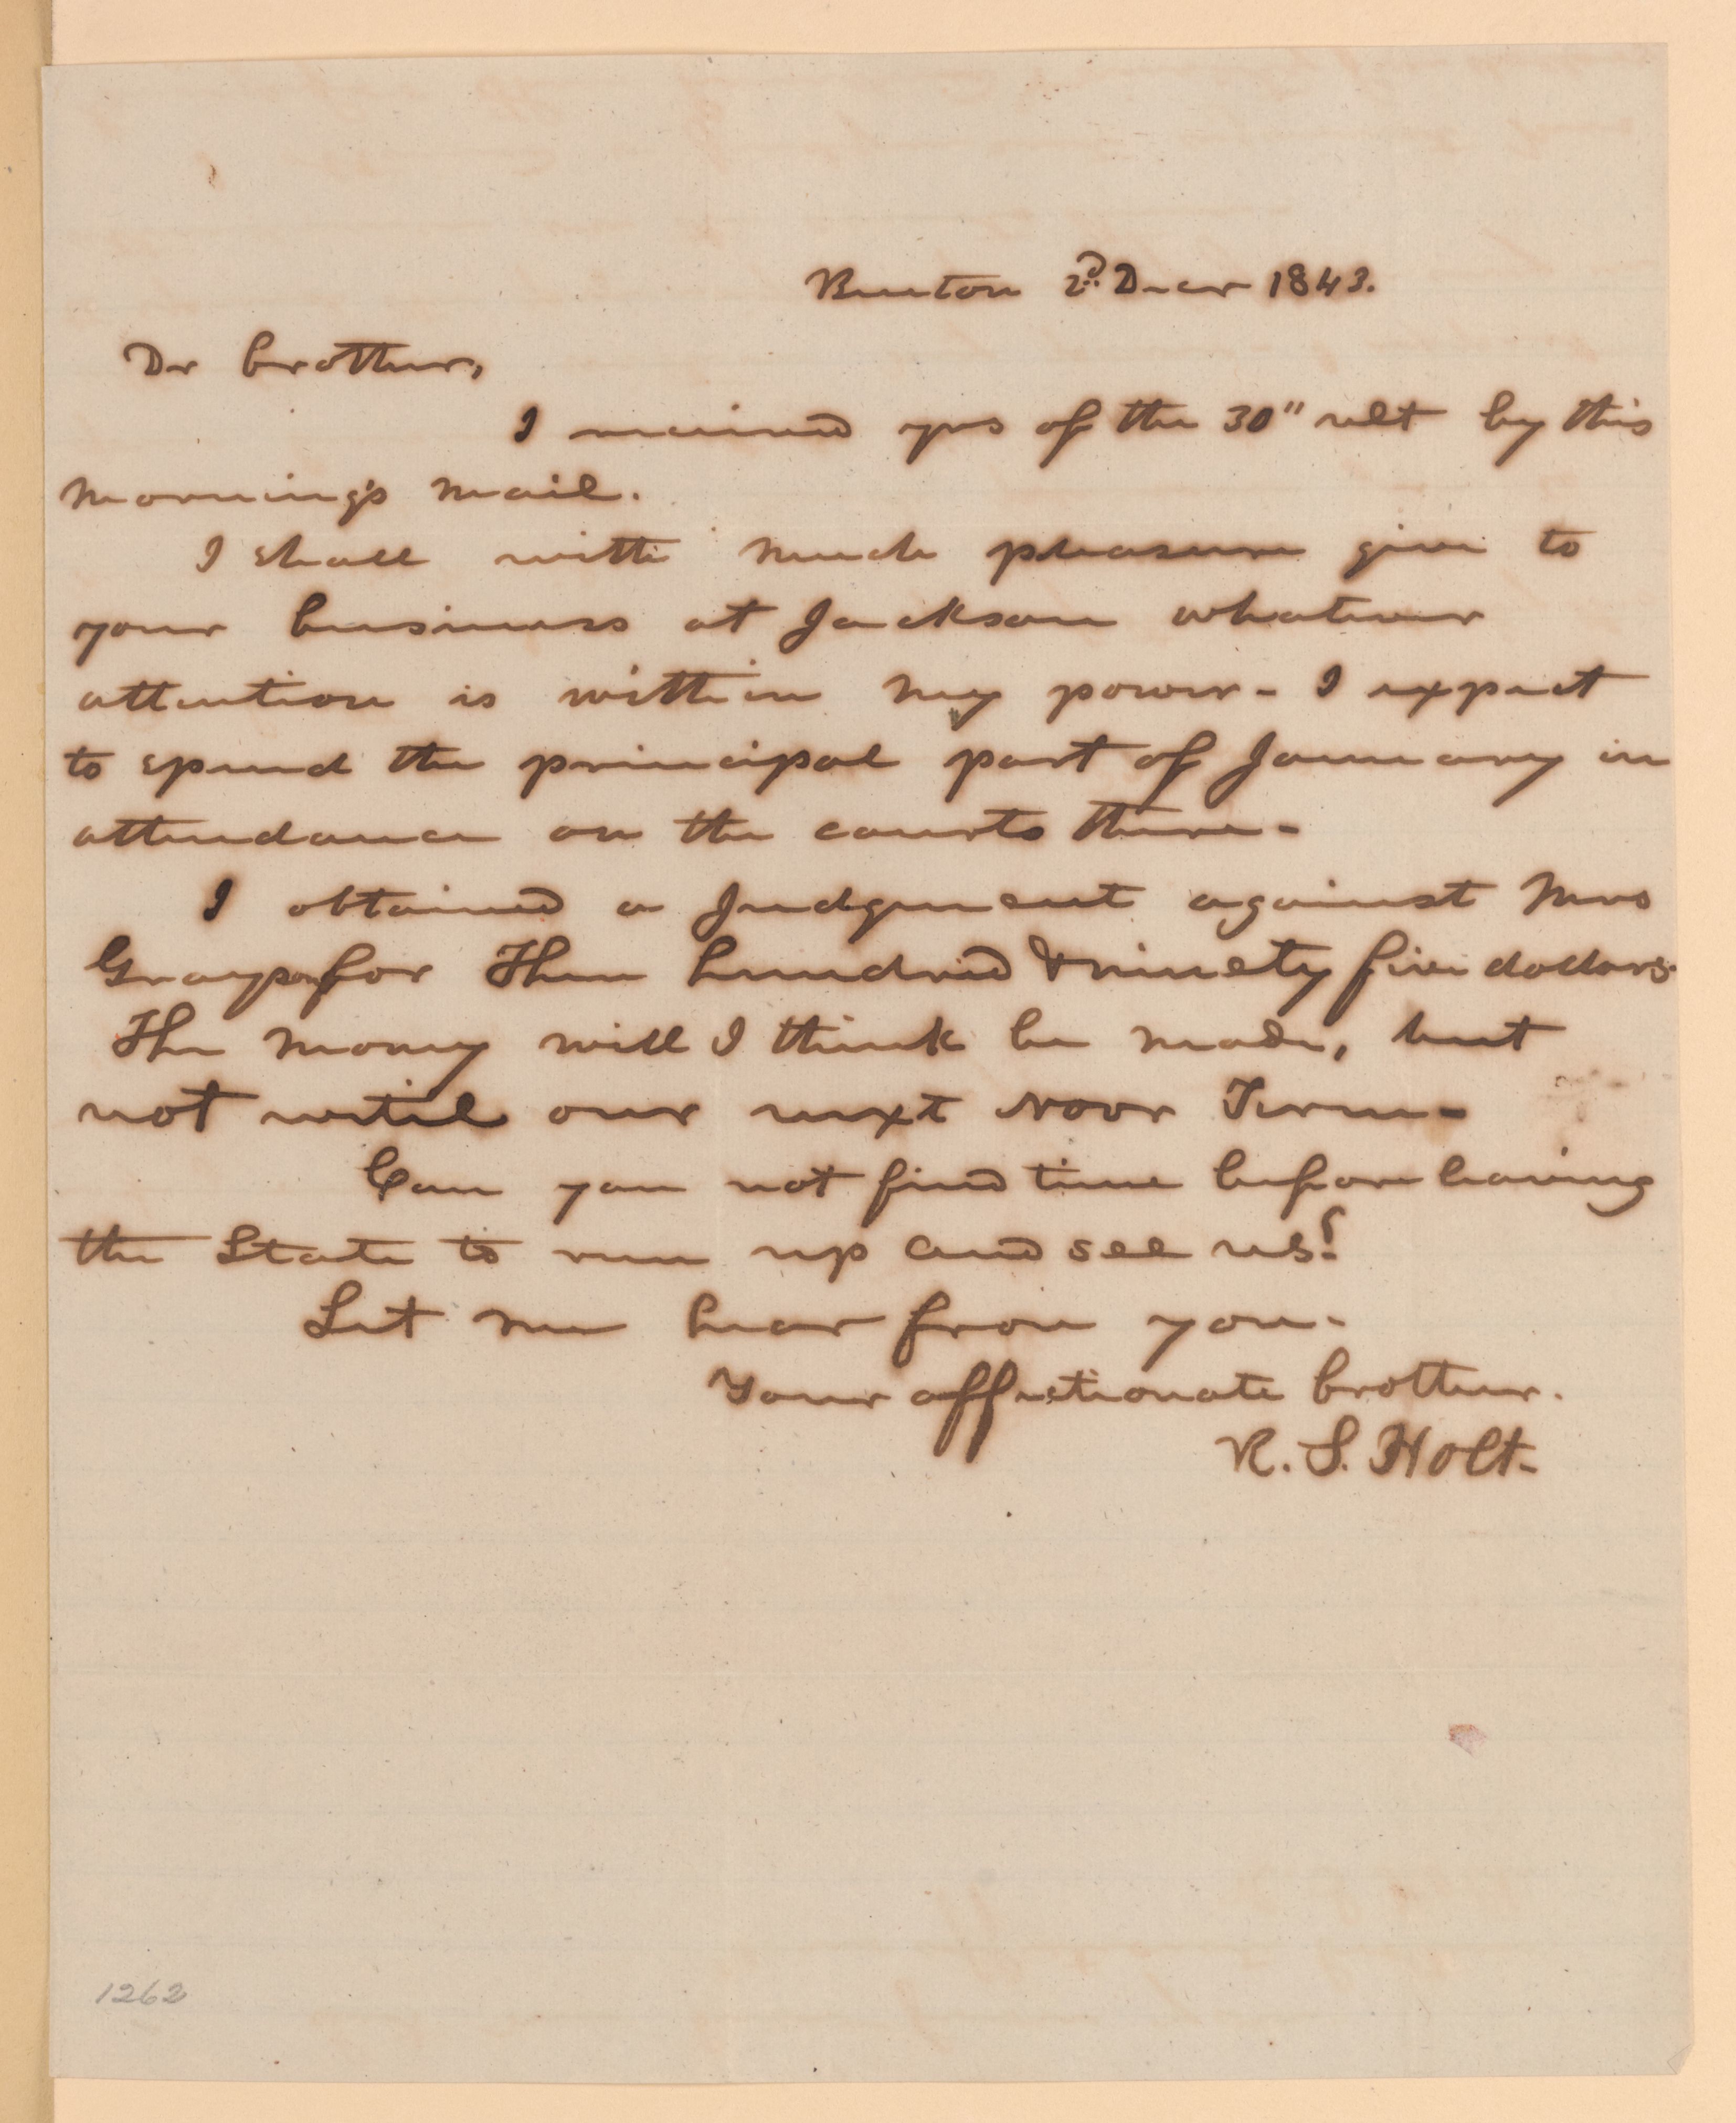 Benton 2d Decr 1843.
Dr brother,
I received yrs of the 30" ult by this
morning's mail.
I shall with much pleasure give to
your business at Jackson whatever
attention is within my power - I expect
to spend the principal part of January in
attendance on the courts there -
I obtained a Judgment against Mrs
Grayson for Three hundred & ninety five dollars.
The money will I think be made, but
not until our next Novr Term -
Can you not find time before leaving
the State to run up and see us?
Let me hear from you -
Your affectionate brother.
R. S. Holt -
1262